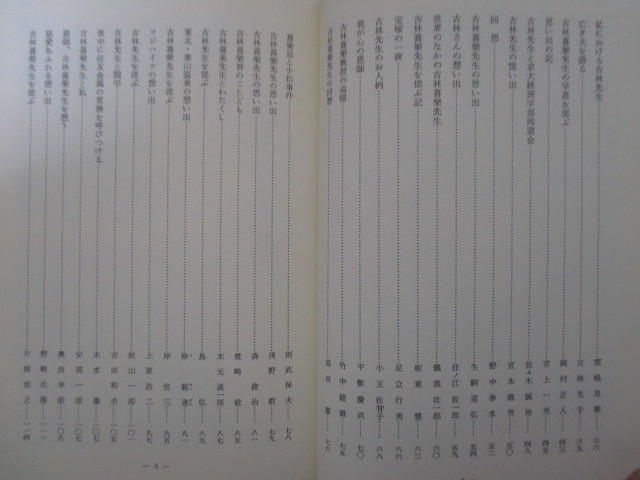 私における吉林先生 三六
亡き夫を語る 吉林光子 三九
吉林喜樂先生の学恩を偲ぶ 岡村正人 四三
思い出の記 宮上一男 四五
吉林先生と京大経済学部同窓会 佐々木誠治 四八
吉林先生の憶い出 宮本義男 五〇
回想 野中春水 五二
吉林喜樂先生の思い出 生駒道弘 五五
吉林さんの想い出 住ノ江佐一郎 五九
世界のなかの吉林喜樂先生 儀我壮一郎 六〇
吉林喜樂先生を偲ぶ記 板東慧 六二
宝塚の一夜 足立行男 六六
吉林先生のお人柄 小玉佐智子 六八
我が心の恩師 平敷慶武 七〇
吉林喜樂教授の追憶 竹中龍雄 七五
吉林喜樂先生の回想 七六
喜樂居と小火事件 田武保夫 七八
吉林喜樂先生の思い出 浅野敞 七九
吉林喜樂先生の思い出 森俊治 八一
吉林喜樂君のことども 豊崎稔 八五
吉林喜樂先生とわたくし 木元進一郎 八六
吉林喜樂先生を偲ぶ 島弘 八九
東北・栗山温泉の想い出 徐龍達 九〇
吉林喜樂先生を偲ぶ 岸悦三 九五
フジハイツの想い出 上原浩二 九七
吉林先生を偲ぶ 秋山一郎 一〇〇
吉林先生と閩学 吉田和夫 一〇二
夜中に佐久金属の常務を呼びつける 木本 一〇六
吉林喜樂先生と私 安部一成 一〇八
恩師、吉林喜樂先生を想う 奥田幸助 一〇九
慈愛あふれる想い出 野崎 一一三
吉林喜樂先生を偲ぶ 片岡 一一四
— 3 —